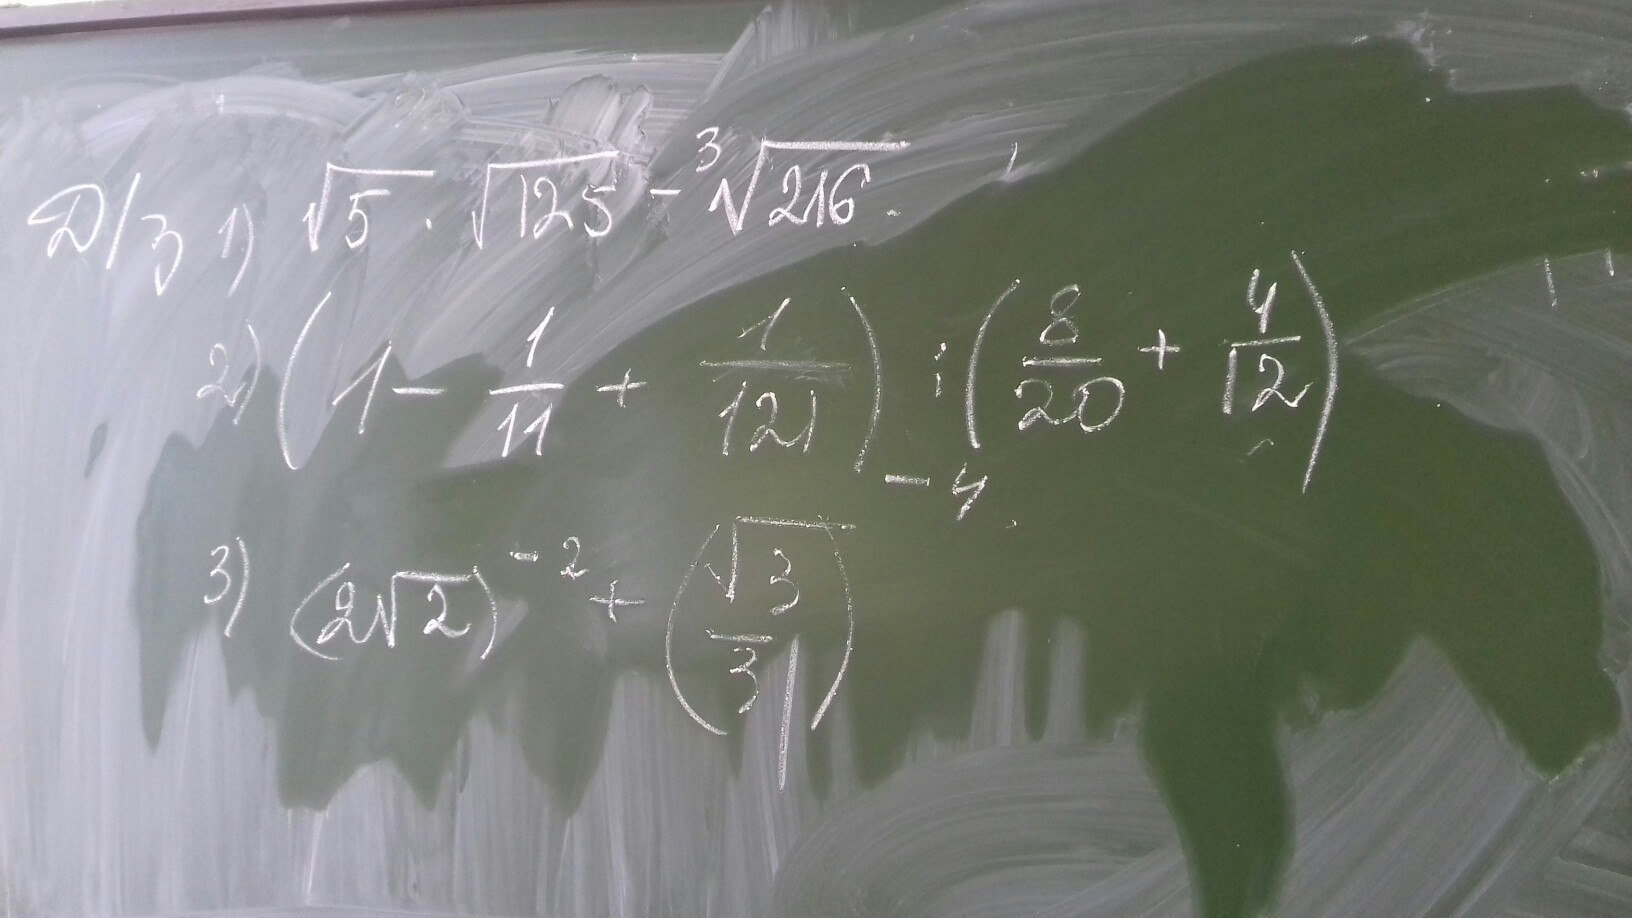 Д/з 1) √5 · √125 - ³√216.
2) (1 - 1/11 + 1/121) : (8/20 + 4/12)
3) (2√2)⁻² + (√3/3)⁻⁴